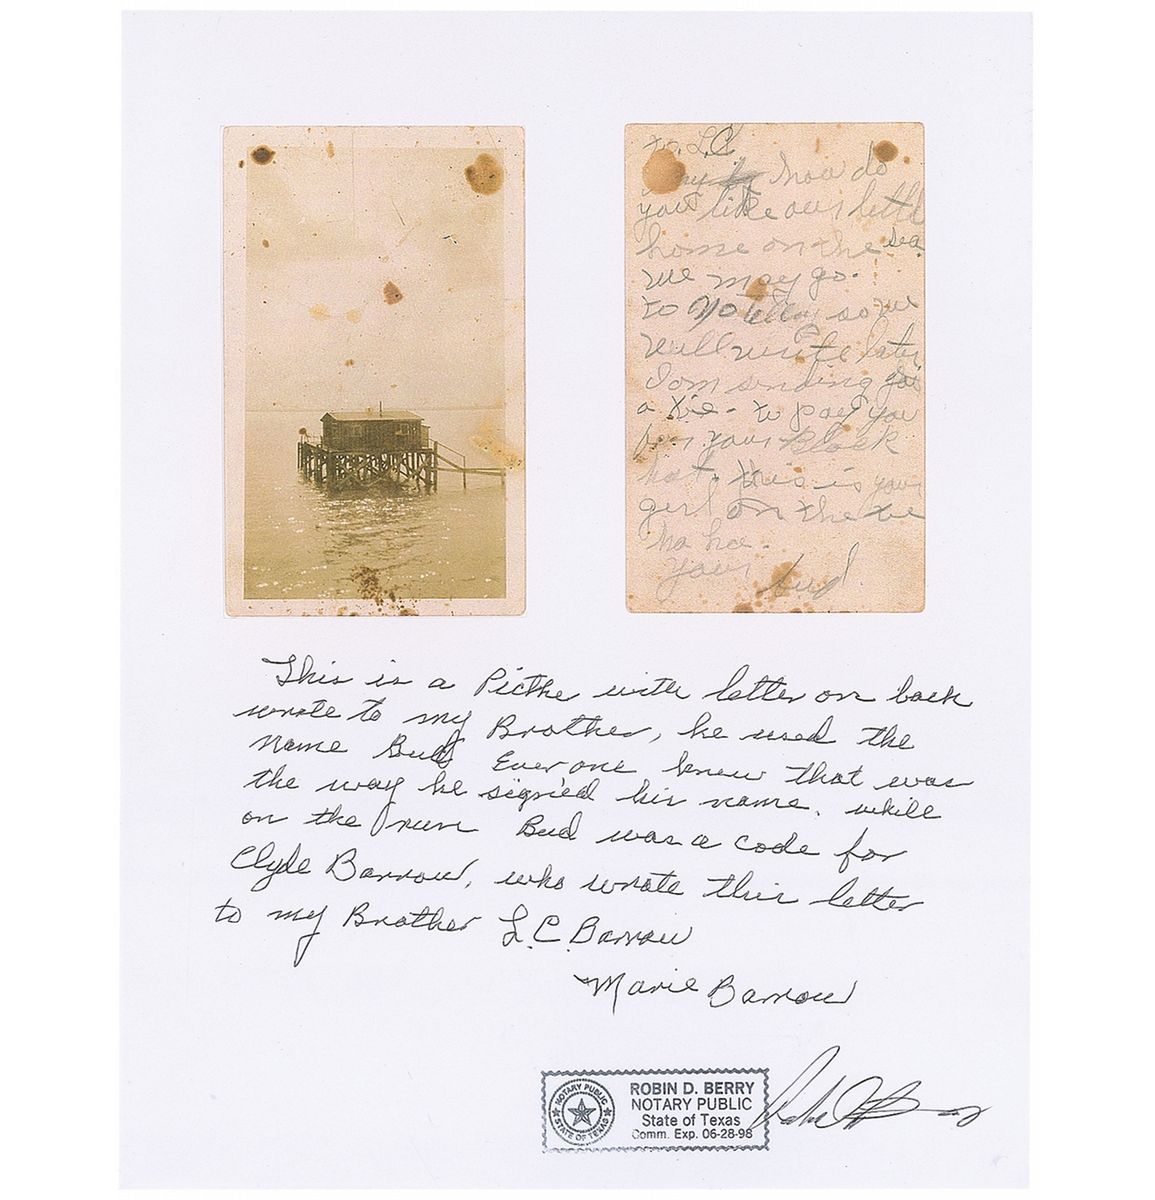 to L.C
how do
you like our little
home on the sea
we may go.
to so we
will write later
I am sending you
a tie - to pay you
for your Black
hat. this is your
girl on the tie
ha ha.
your bud
This is a Pictue with letter on back
wrote to my Brother, he used the
name Bud Ever one knew that was
the way he signed his name. while
on the run Bud was a code for
Clyde Barrow, who wrote this letter
to my Brother L.C. Barrow
Marie Barrow
ROBIN D. BERRY
NOTARY PUBLIC
State of Texas
Comm. Exp. 06-28-98
NOTARY PUBLIC
STATE OF TEXAS